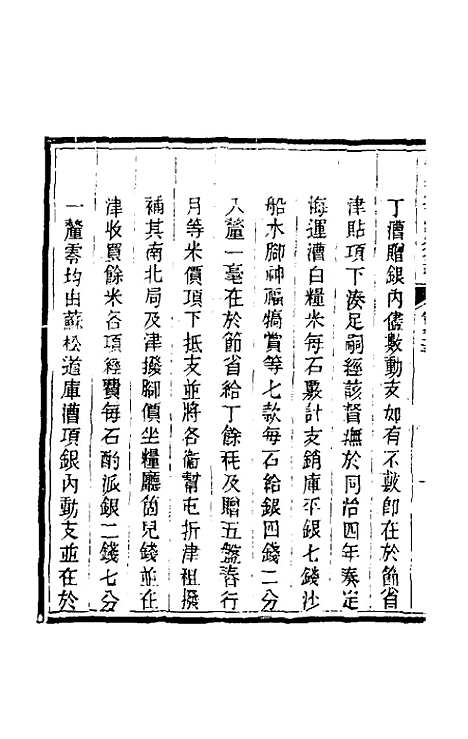 丁漕贈銀內儘數動支如有不敷卽在於節省
津貼項下湊足嗣經該督撫於同治四年奏定
海運漕白糧米每石覈計支銷庫平銀七錢沙
船水腳神福犒賞等七款每石給銀四錢二分
八釐一毫在於節省給丁餘秏及贈五盤舂行
月等米價項下抵支並將各衞幫屯折津租撥
補其南北局及津撥腳價坐糧廳箇兒錢並在
津收買餘米各項經費每石酌派銀二錢七分
一釐零均由蘇松道庫漕項銀內動支並在於